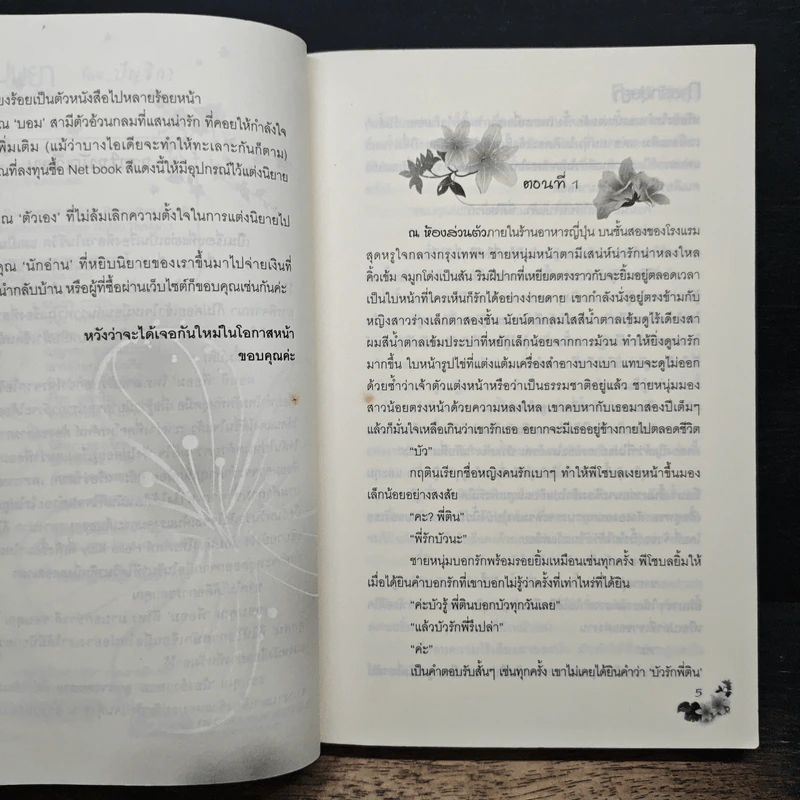 ยงร้อยเป็นตัวหนังสือไปหลายร้อยหน้า
ณ ‘บอม’ สามีตัวอ้วนกลมที่แสนน่ารัก ที่คอยให้กำลังใจ
พิ่มเติม (แม้ว่าบางไอเดียจะทำให้ทะเลาะกันก็ตาม)
ณที่ลงทุนซื้อ Net book สีแดงนี้ให้มีอุปกรณ์ไว้แต่งนิยาย
ณ ‘ตัวเอง’ ที่ไม่ล้มเลิกความตั้งใจในการแต่งนิยายไป
คุณ ‘นักอ่าน’ ที่หยิบนิยายของเราขึ้นมาไปจ่ายเงินที่
นำกลับบ้าน หรือผู้ที่ซื้อผ่านเว็บไซต์ก็ขอบคุณเช่นกันค่ะ
หวังว่าจะได้เจอกันใหม่ในโอกาสหน้า
ขอบคุณค่ะ
ตอนที่ 1
ณ ห้องส่วนตัวภายในร้านอาหารญี่ปุ่น บนชั้นสองของโรงแรม
สุดหรูใจกลางกรุงเทพฯ ชายหนุ่มหน้าตามีเสน่ห์น่ารักน่าหลงใหล
คิ้วเข้ม จมูกโด่งเป็นสัน ริมฝีปากที่เหยียดตรงราวกับจะยิ้มอยู่ตลอดเวลา
เป็นใบหน้าที่ใครเห็นก็รักได้อย่างง่ายดาย เขากำลังนั่งอยู่ตรงข้ามกับ
หญิงสาวร่างเล็กตาสองชั้น นัยน์ตากลมใสสีน้ำตาลเข้มดูไร้เดียงสา
ผมสีน้ำตาลเข้มประบ่าที่หยักเล็กน้อยจากการม้วน ทำให้ยิ่งดูน่ารัก
มากขึ้น ใบหน้ารูปไข่ที่แต่งแต้มเครื่องสำอางบางเบา แทบจะดูไม่ออก
ด้วยซ้ำว่าเจ้าตัวแต่งหน้าหรือว่าเป็นธรรมชาติอยู่แล้ว ชายหนุ่มมอง
สาวน้อยตรงหน้าด้วยความหลงใหล เขาคบหากับเธอมาสองปีเต็มๆ
แล้วก็มั่นใจเหลือเกินว่าเขารักเธอ อยากจะมีเธออยู่ข้างกายไปตลอดชีวิต
“บัว”
กฤตินเรียกชื่อหญิงคนรักเบาๆ ทำให้พีโชบลเงยหน้าขึ้นมอง
เล็กน้อยอย่างสงสัย
“คะ? พี่ติน”
“พี่รักบัวนะ”
ชายหนุ่มบอกรักพร้อมรอยยิ้มเหมือนเช่นทุกครั้ง พีโชบลยิ้มให้
เมื่อได้ยินคำบอกรักที่เขาบอกไม่รู้ว่าครั้งที่เท่าไหร่ที่ได้ยิน
“ค่ะบัวรู้ พี่ตินบอกบัวทุกวันเลย”
“แล้วบัวรักพี่รึเปล่า”
“ค่ะ”
เป็นคำตอบรับสั้นๆ เช่นทุกครั้ง เขาไม่เคยได้ยินคำว่า ‘บัวรักพี่ติน’
5